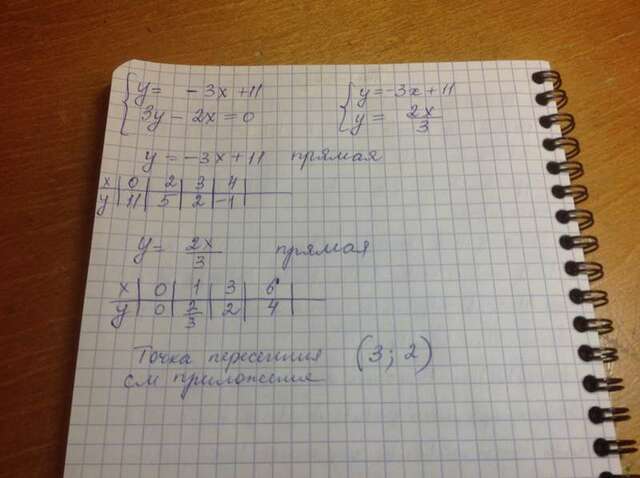 { y = -3x + 11
3y - 2x = 0
{ y = -3x + 11
y = 2x/3
y = -3x + 11 прямая
x | 0 | 2 | 3 | 4 |
y | 11 | 5 | 2 | -1 |
y = 2x/3 прямая
x | 0 | 1 | 3 | 6 |
y | 0 | 2/3 | 2 | 4 |
Точка пересечния (3; 2)
см приложения